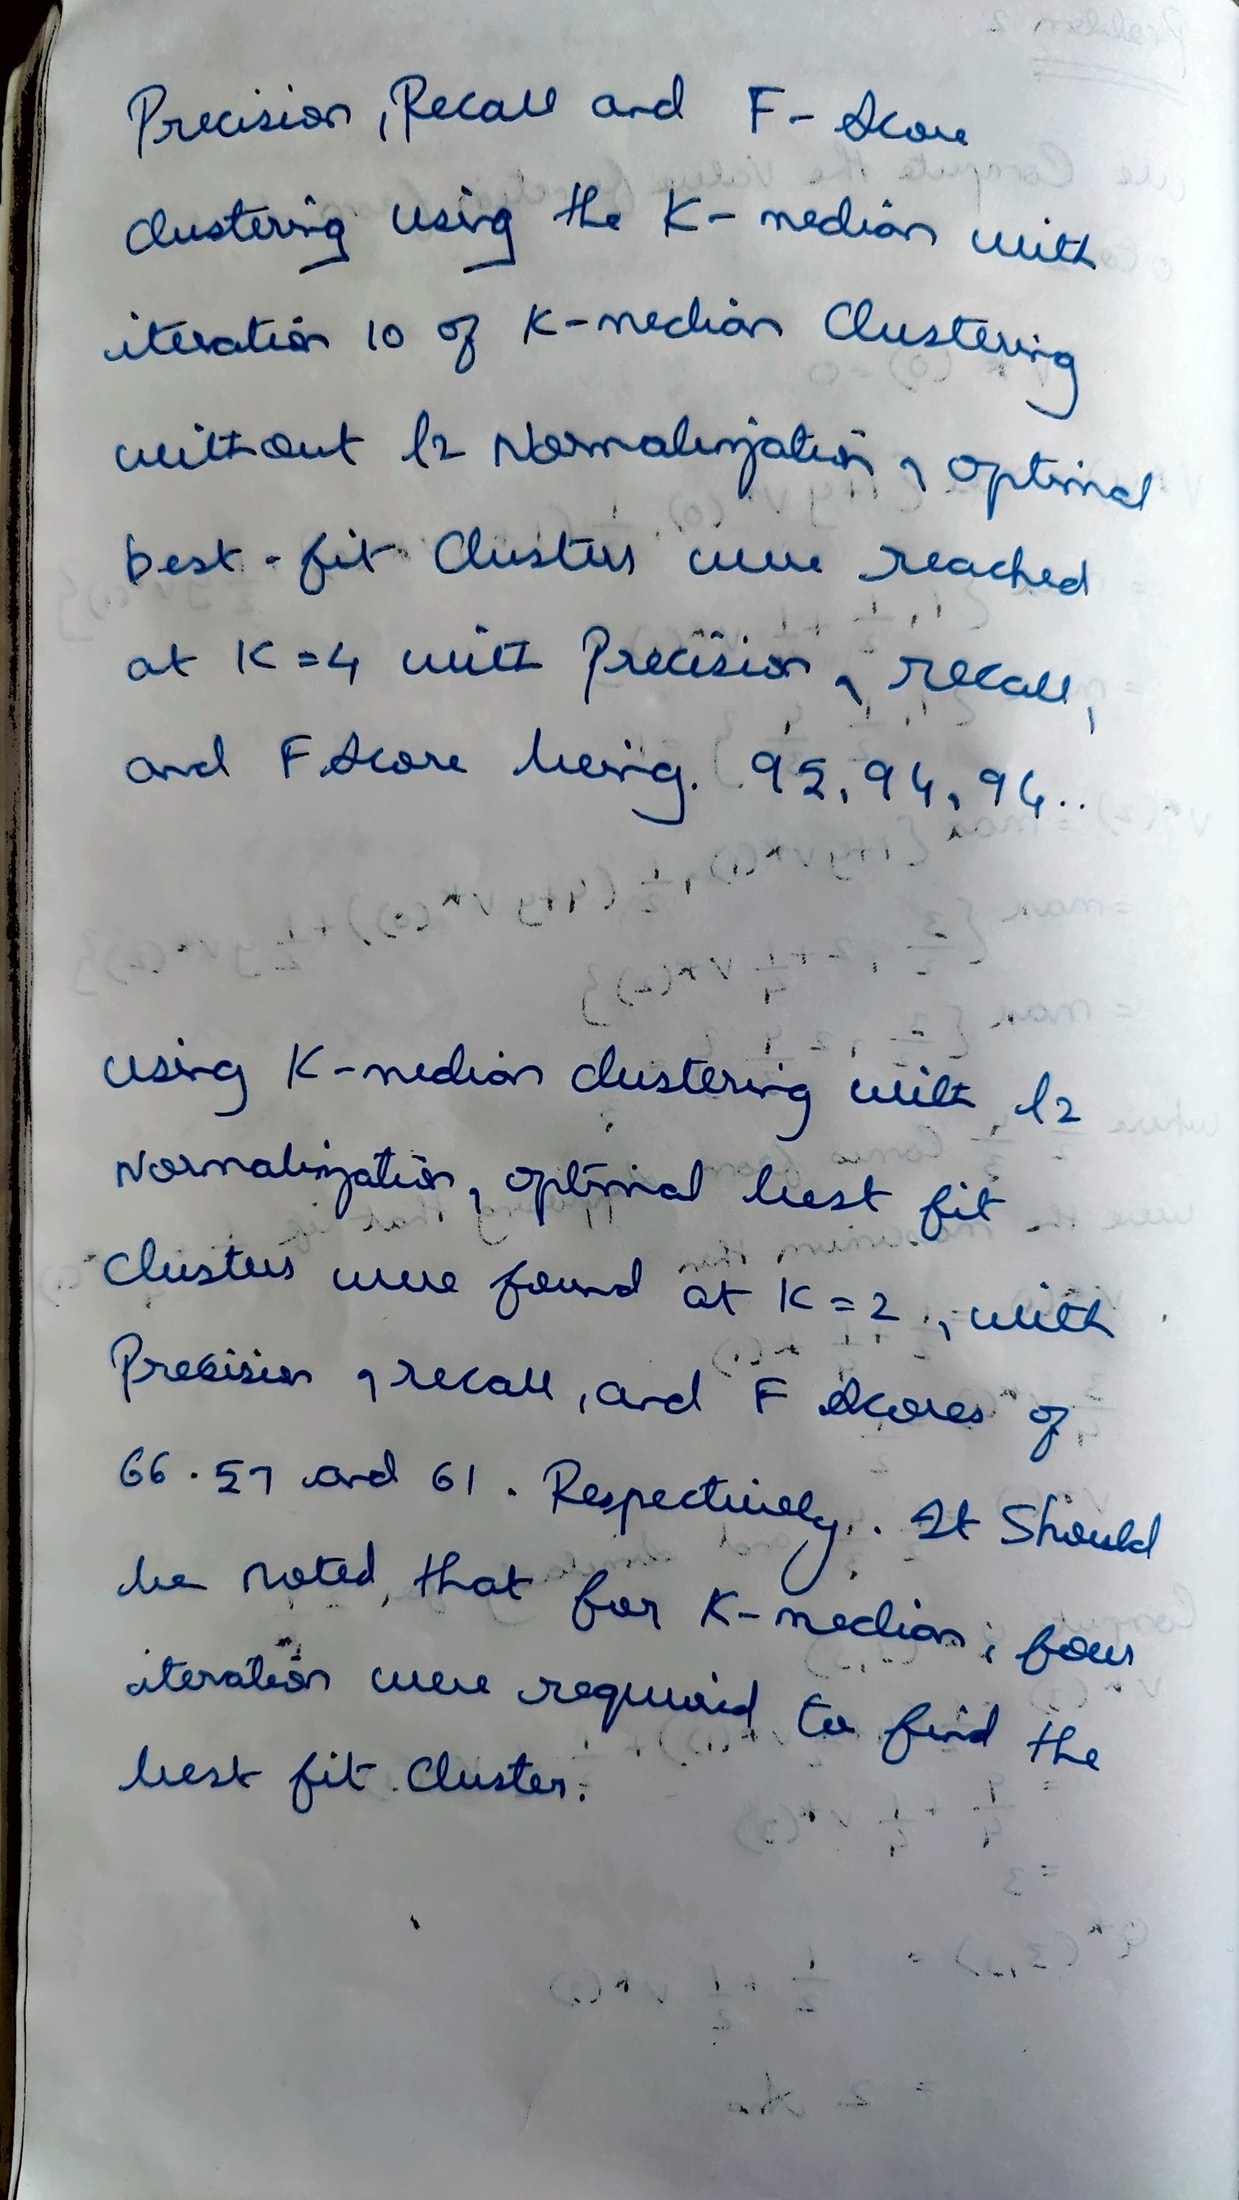 Precision, Recall and F-Score
clustering using the K-median with
iteration 10 of K-median Clustering
without l2 Normalization, optimal
best-fit Clusters were reached
at K=4 with Precision, recall,
and F Score being. 95, 94, 94..
using K-median clustering with l2
Normalization, optimal best fit
Clusters were found at K=2, with
Precision, recall, and F Scores of
66.57 and 61. Respectively. It Should
be noted that for K-median, four
iteration were required to find the
best fit Cluster.